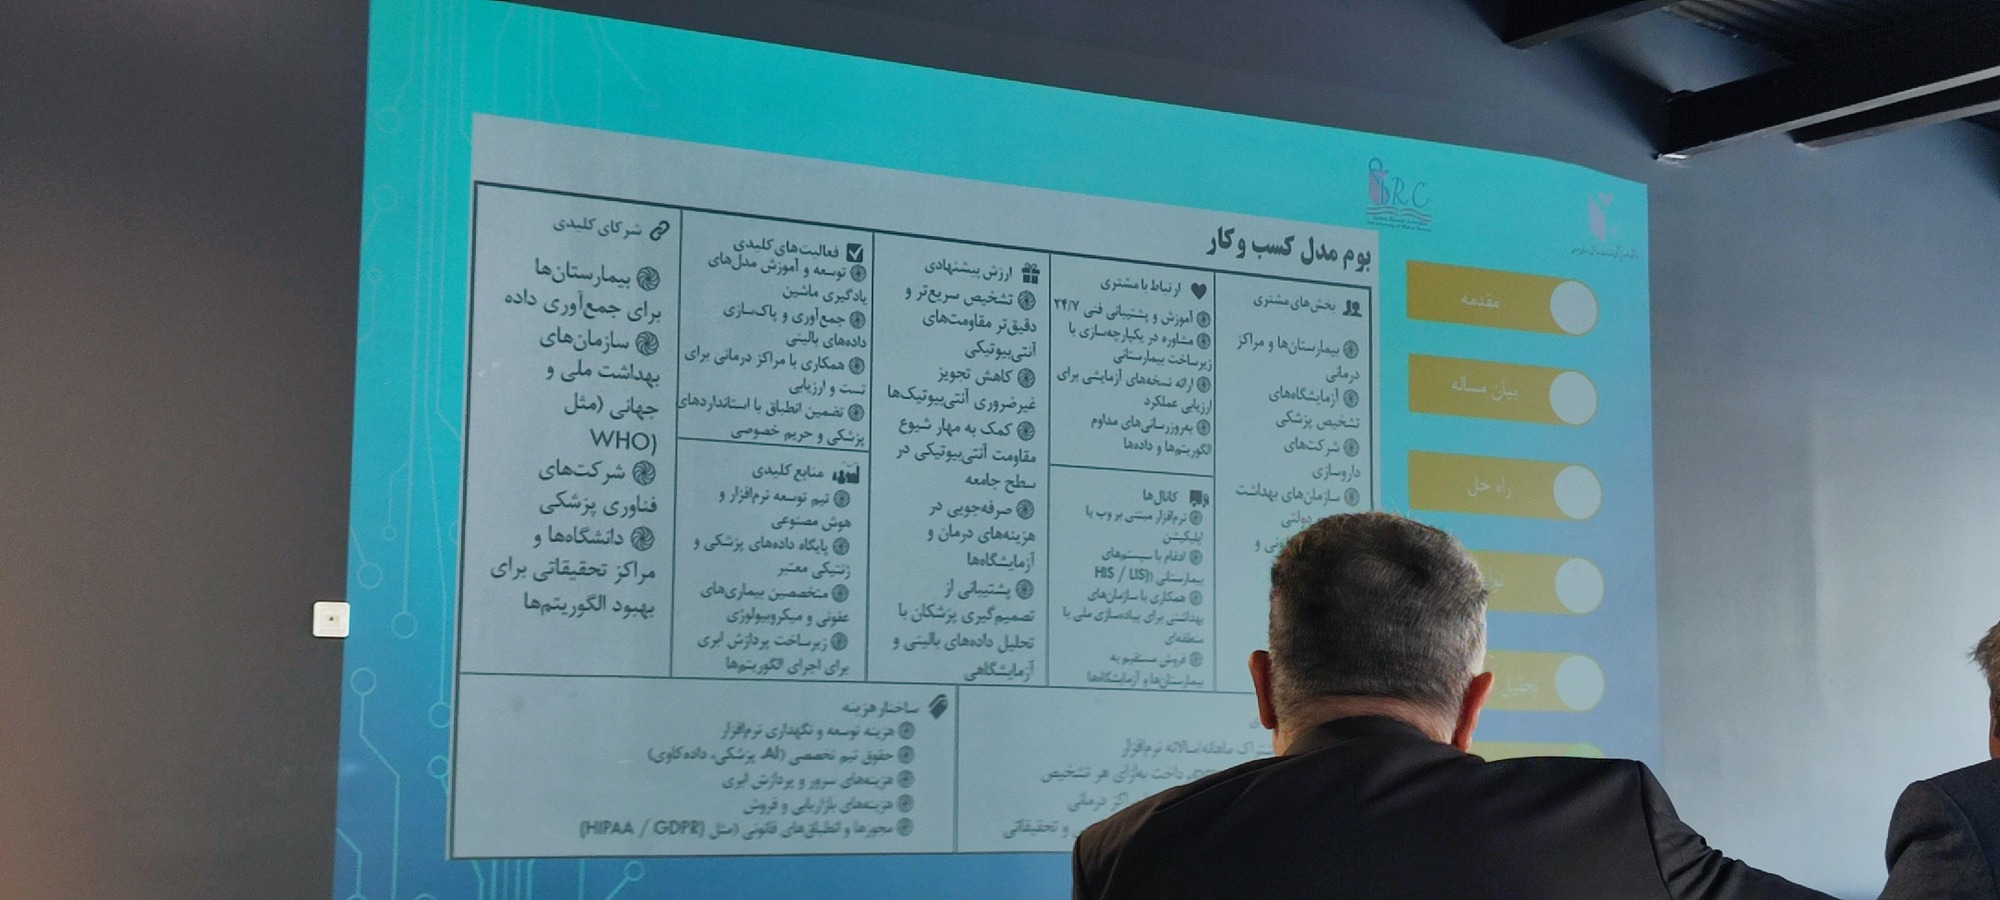 بوم مدل کسب و کار
SRC
بخش‌های مشتری
بیمارستان‌ها و مراکز
درمانی
آزمایشگاه‌های
تشخیص پزشکی
شرکت‌های
داروسازی
سازمان‌های بهداشت
دولتی
ارتباط با مشتری
آموزش و پشتیبانی فنی ۲۴/۷
مشاوره در یکپارچه‌سازی با
زیرساخت بیمارستانی
ارائه نسخه‌های آزمایشی برای
ارزیابی عملکرد
به‌روزرسانی‌های مداوم
الگوریتم‌ها و داده‌ها
کانال‌ها
نرم‌افزار مبتنی بر وب یا
اپلیکیشن
ادغام با سیستم‌های
بیمارستانی (HIS / LIS)
همکاری با سازمان‌های
بهداشتی برای پیاده‌سازی ملی یا
منطقه‌ای
فروش مستقیم به
بیمارستان‌ها و آزمایشگاه‌ها
ارزش پیشنهادی
تشخیص سریع‌تر و
دقیق‌تر مقاومت‌های
آنتی‌بیوتیکی
کاهش تجویز
غیرضروری آنتی‌بیوتیک‌ها
کمک به مهار شیوع
مقاومت آنتی‌بیوتیکی در
سطح جامعه
صرفه‌جویی در
هزینه‌های درمان و
آزمایشگاه‌ها
پشتیبانی از
تصمیم‌گیری پزشکان با
تحلیل داده‌های بالینی و
آزمایشگاهی
فعالیت‌های کلیدی
توسعه و آموزش مدل‌های
یادگیری ماشین
جمع‌آوری و پاک‌سازی
داده‌های بالینی
همکاری با مراکز درمانی برای
تست و ارزیابی
تضمین انطباق با استانداردهای
پزشکی و حریم خصوصی
منابع کلیدی
تیم توسعه نرم‌افزار و
هوش مصنوعی
پایگاه داده‌های پزشکی و
ژنتیکی معتبر
متخصصین بیماری‌های
عفونی و میکروبیولوژی
زیرساخت پردازش ابری
برای اجرای الگوریتم‌ها
شرکای کلیدی
بیمارستان‌ها
برای جمع‌آوری داده
سازمان‌های
بهداشت ملی و
جهانی (مثل
WHO)
شرکت‌های
فناوری پزشکی
دانشگاه‌ها و
مراکز تحقیقاتی برای
بهبود الگوریتم‌ها
ماهانه/سالانه نرم‌افزار
به‌ازای هر تشخیص
درمانی
و تحقیقاتی
ساختار هزینه
هزینه توسعه و نگهداری نرم‌افزار
حقوق تیم تخصصی (AI، پزشکی، داده‌کاوی)
هزینه‌های سرور و پردازش ابری
هزینه‌های بازاریابی و فروش
مجوزها و انطباق‌های قانونی (مثل HIPAA / GDPR)
مقدمه
بیان مساله
راه حل
تحلیل